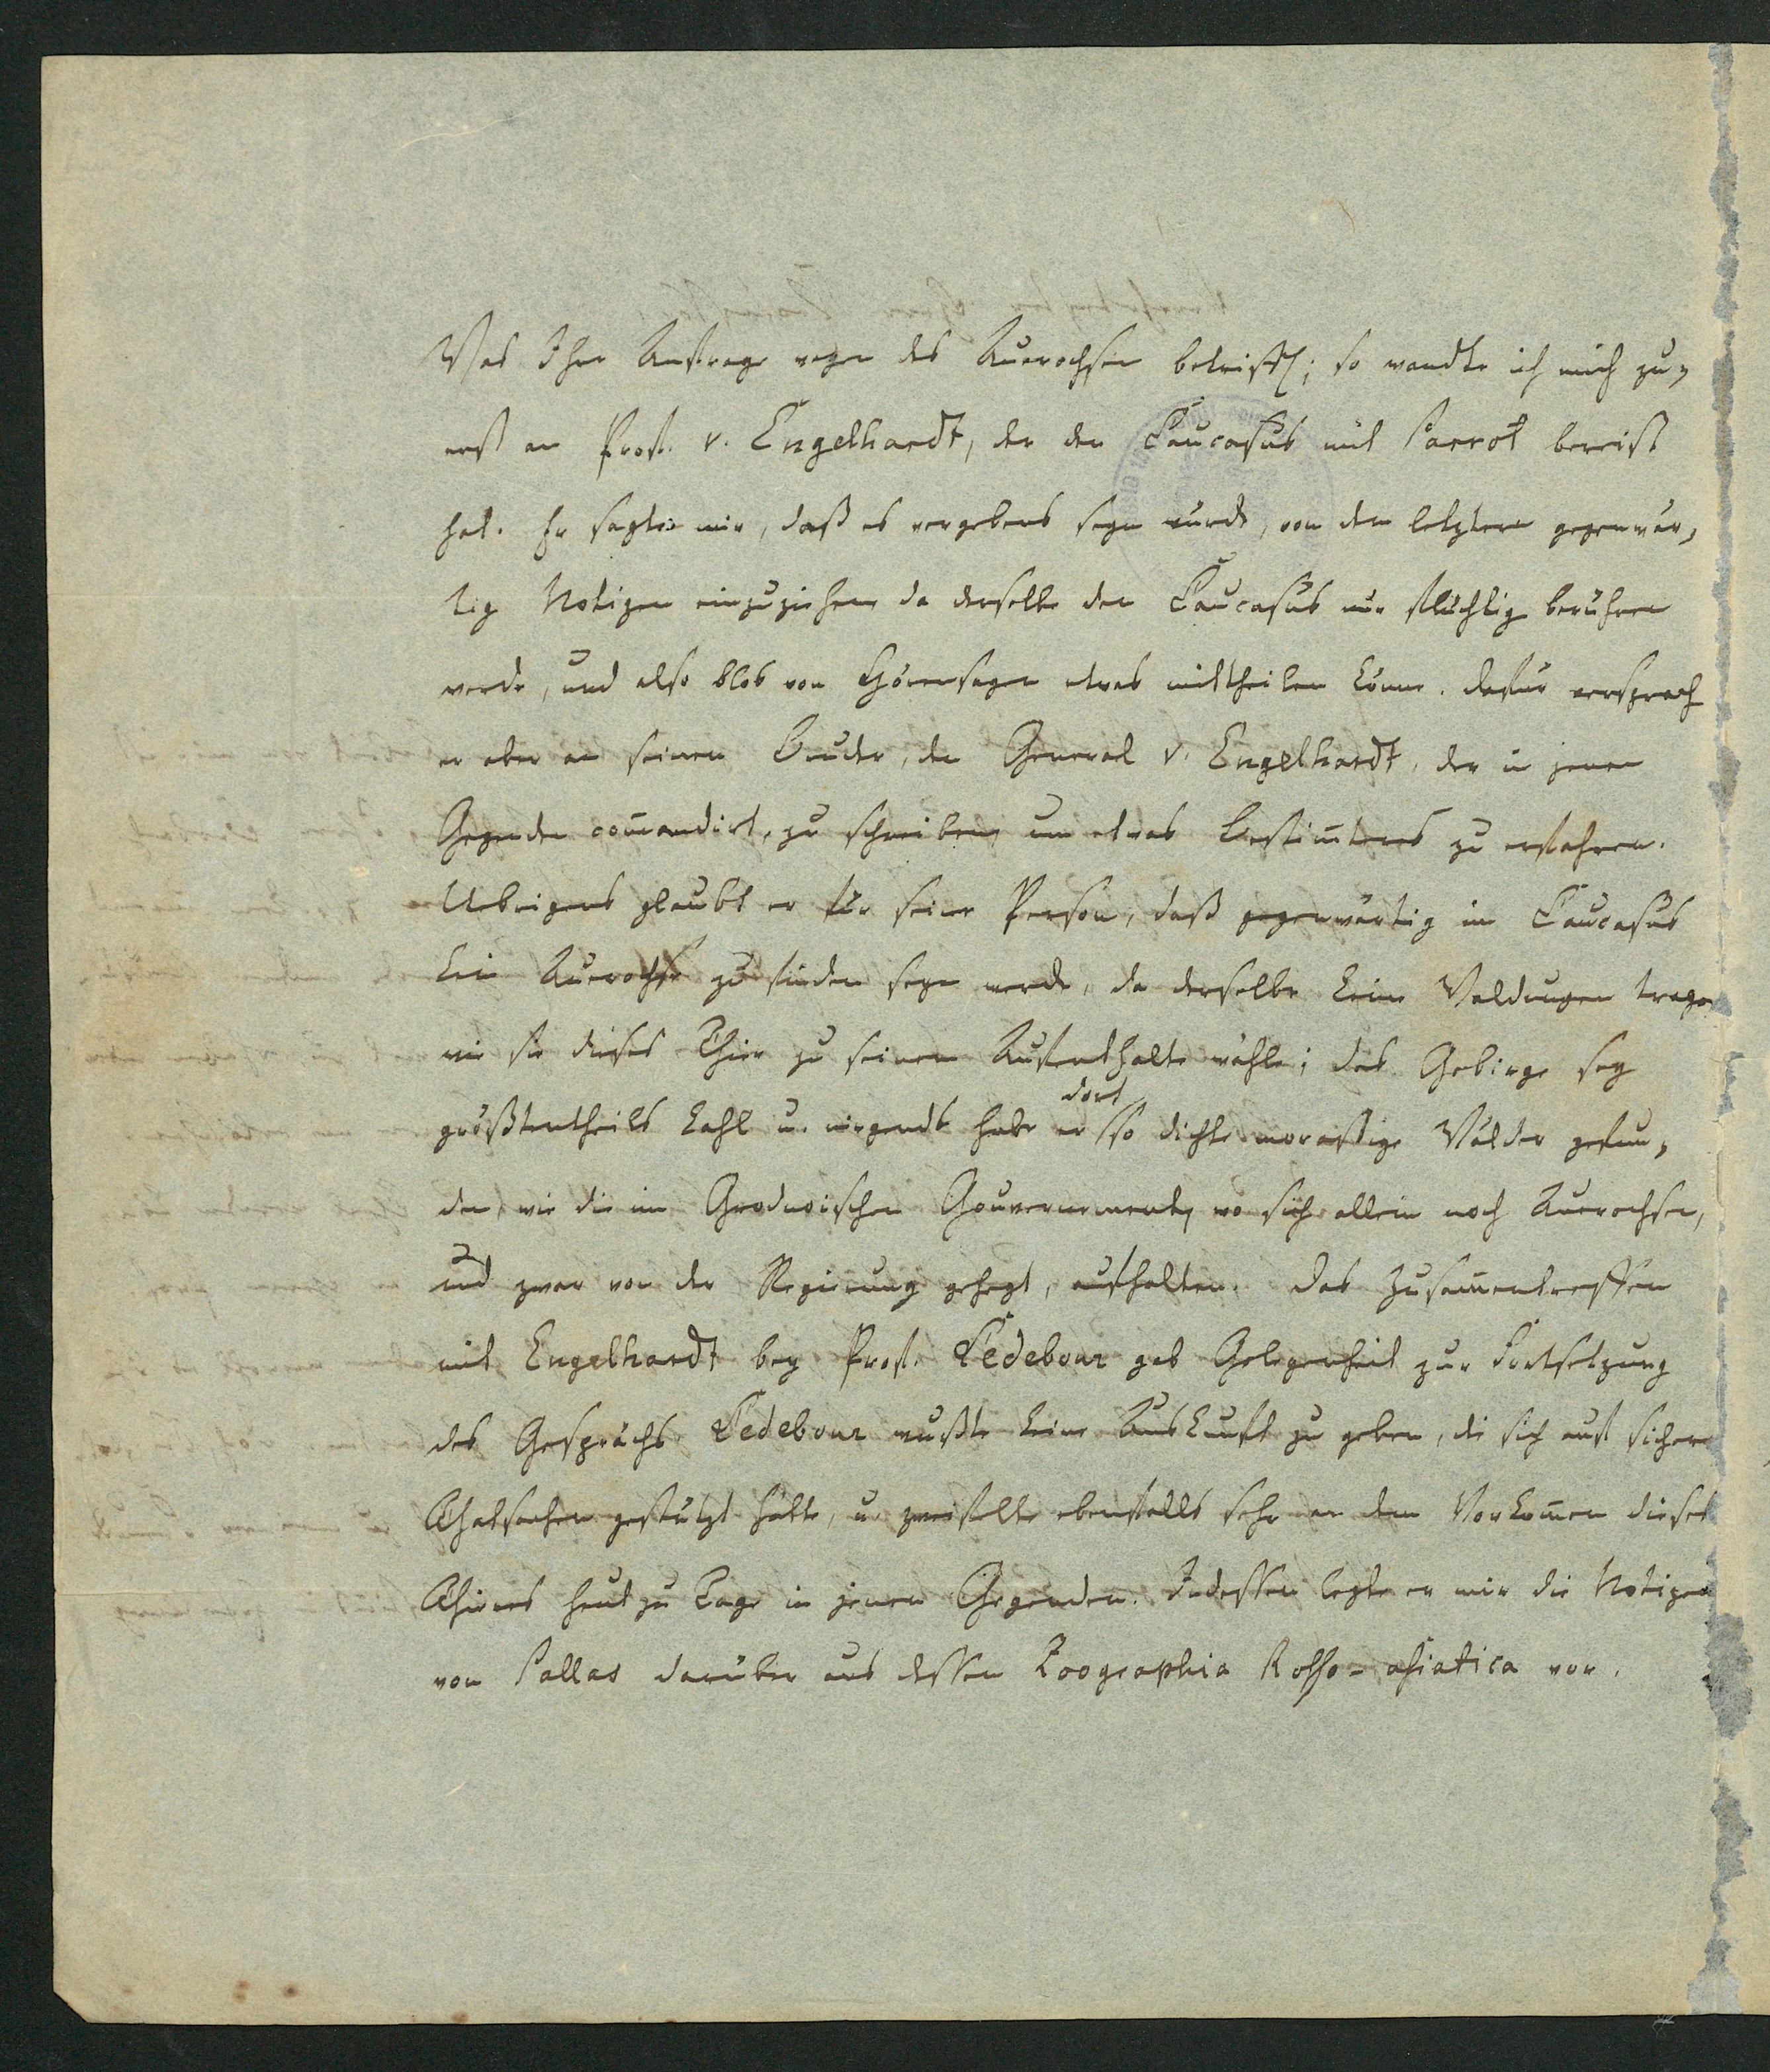 Was Ihre Anfrage wegen des Auerochsen betrifft; so wandte ich mich zu-
erst an Prof. v. Engelhardt, der den Caucasus mit Parrot bereist
hat. Er sagte mir, daß es vergebens seyn würde, von dem letztern gegenwär-
tig Notizen einzuziehen da derselbe den Caucasus nur flüchtig berühren
werde, und also blos von Hörensagen etwas mittheilen könne. Dafür versprach
er aber an seinen Bruder, den General v. Engelhardt, der in jenen
Gegenden com̄andirt, zu schreiben, um etwas Bestim̄teres zu erfahren.
Uebrigens glaubt er für seine Person, daß gegenwärtig im Caucasus
kein Auerochse zu finden seyn werde, da derselbe keine Waldungen trage
wie sie dieses Thier zu seinem Aufenthalte wähle; das Gebirge sey
größtentheils kahl u. nirgends habe er dort so dichte moraßige Wälder gefun-
den, wie die im Grodnoischen Gouvernement, wo sich allein noch Auerochsen,
und zwar von der Regierung gehegt, aufhalten. Das Zusam̄entreffen
mit Engelhardt bey Prof. Ledebour gab Gelegenheit zur Fortsetzung
des Gesprächs. Ledebour wußte keine Auskunft zu geben, die sich auf sichere
Thatsachen gestützt hätte, u. zweifelte ebenfalls sehr an dem Vorkom̄en dieses
Thieres heut zu Tage in jenen Gegenden. Indessen legte er mir die Notizen
von Pallas darüber aus dessen Zoographia Rosso-asiatica vor.